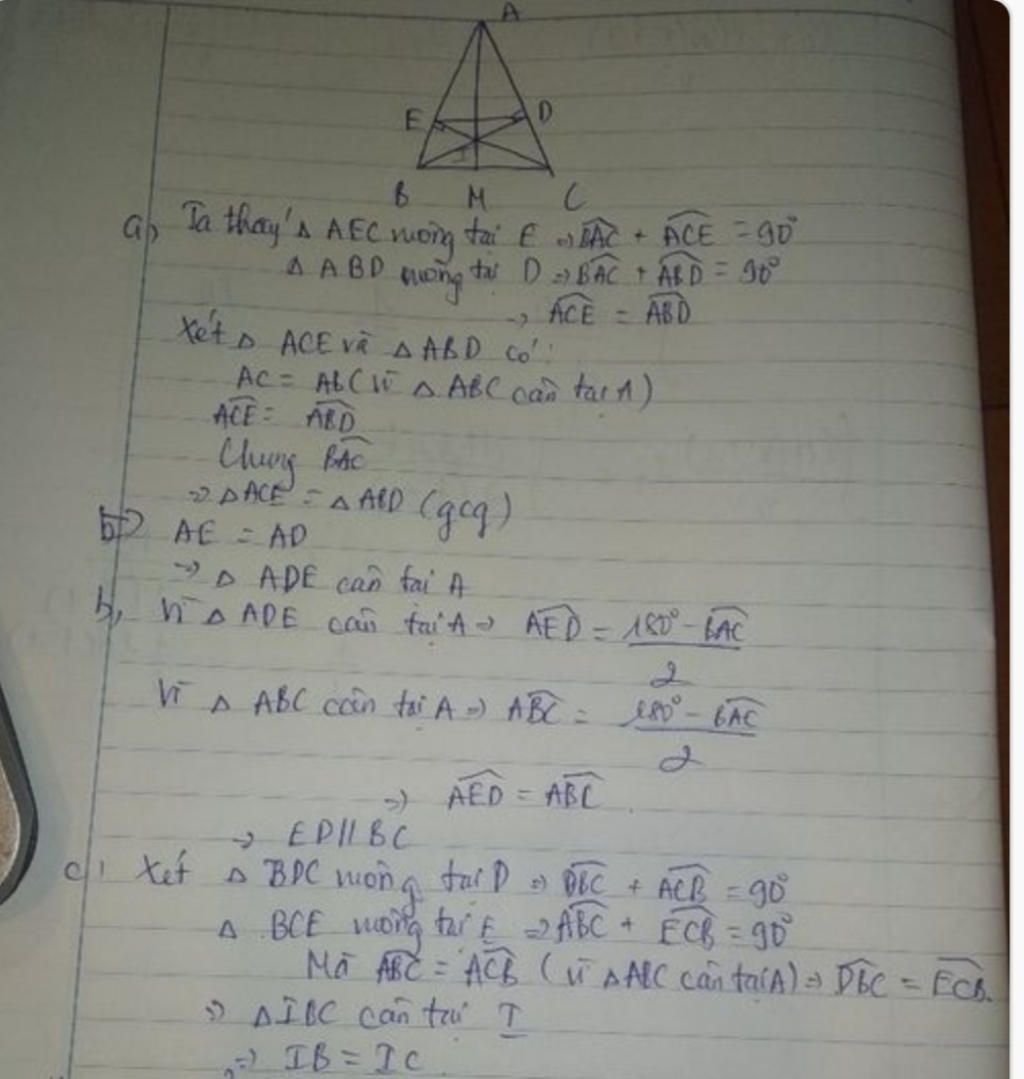 A
E D
I
B M C
a, Ta thấy Δ AEC vuông tại E => \widehat{BAC} + \widehat{ACE} = 90°
Δ ABD vuông tại D => \widehat{BAC} + \widehat{ABD} = 90°
=> \widehat{ACE} = \widehat{ABD}
Xét Δ ACE và Δ ABD có:
AC = AB (vì Δ ABC cân tại A)
\widehat{ACE} = \widehat{ABD}
Chung \widehat{BAC}
=> Δ ACE = Δ ABD (gcg)
=> AE = AD
=> Δ ADE cân tại A
b, Vì Δ ADE cân tại A => \widehat{AED} = \frac{180° - \widehat{BAC}}{2}
Vì Δ ABC cân tại A => \widehat{ABC} = \frac{180° - \widehat{BAC}}{2}
=> \widehat{AED} = \widehat{ABC}
=> ED // BC
c, Xét Δ BDC vuông tại D => \widehat{DBC} + \widehat{ACB} = 90°
Δ BCE vuông tại E => \widehat{ABC} + \widehat{ECB} = 90°
Mà \widehat{ABC} = \widehat{ACB} (vì Δ ABC cân tại A) => \widehat{DBC} = \widehat{ECB}.
=> Δ IBC cân tại I
=> IB = IC